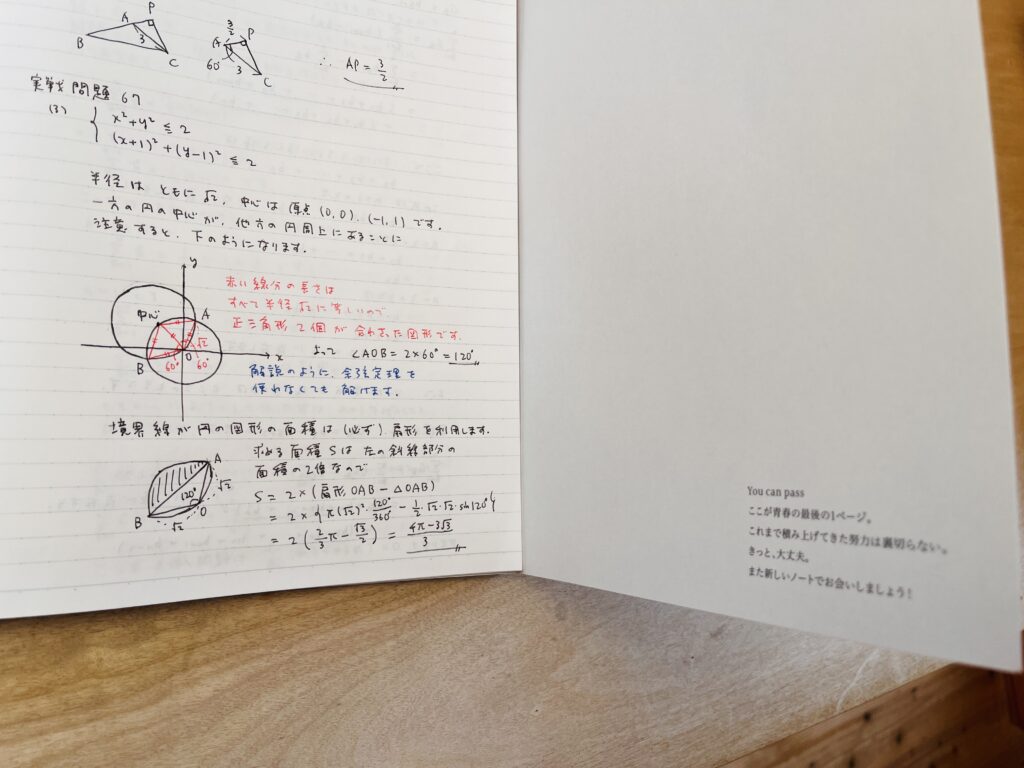 B A P 3 C
3/2 A P 60° 3 C
∴ AP = 3/2
実戦問題 67
(3) { x²+y² ≦ 2
(x+1)²+(y-1)² ≦ 2
半径は ともに √2, 中心は 原点 (0,0), (-1,1) です.
一方の円の中心が, 他方の円周上にあることに
注意すると, 下のようになります.
y
赤い線分の長さは
すべて半径 √2 に等しいので
中心 A
正三角形 2個が合わさった図形です.
√2
O x よって ∠AOB = 2×60° = 120°
B 60° 60°
解説のように, 余弦定理を
使わなくても 解けます.
境界線が円の図形の面積は (必ず) 扇形を利用します.
求める面積 S は 左の斜線部分の
面積の2倍なので
A √2 120° B O √2
S = 2×(扇形 OAB - △OAB)
= 2×{π(√2)²・120°/360° - 1/2・√2・√2・sin120°}
= 2(2/3π - √3/2) = (4π-3√3)/3
You can pass
ここが青春の最後の1ページ。
これまで積み上げてきた努力は裏切らない。
きっと、大丈夫。
また新しいノートでお会いしましょう！